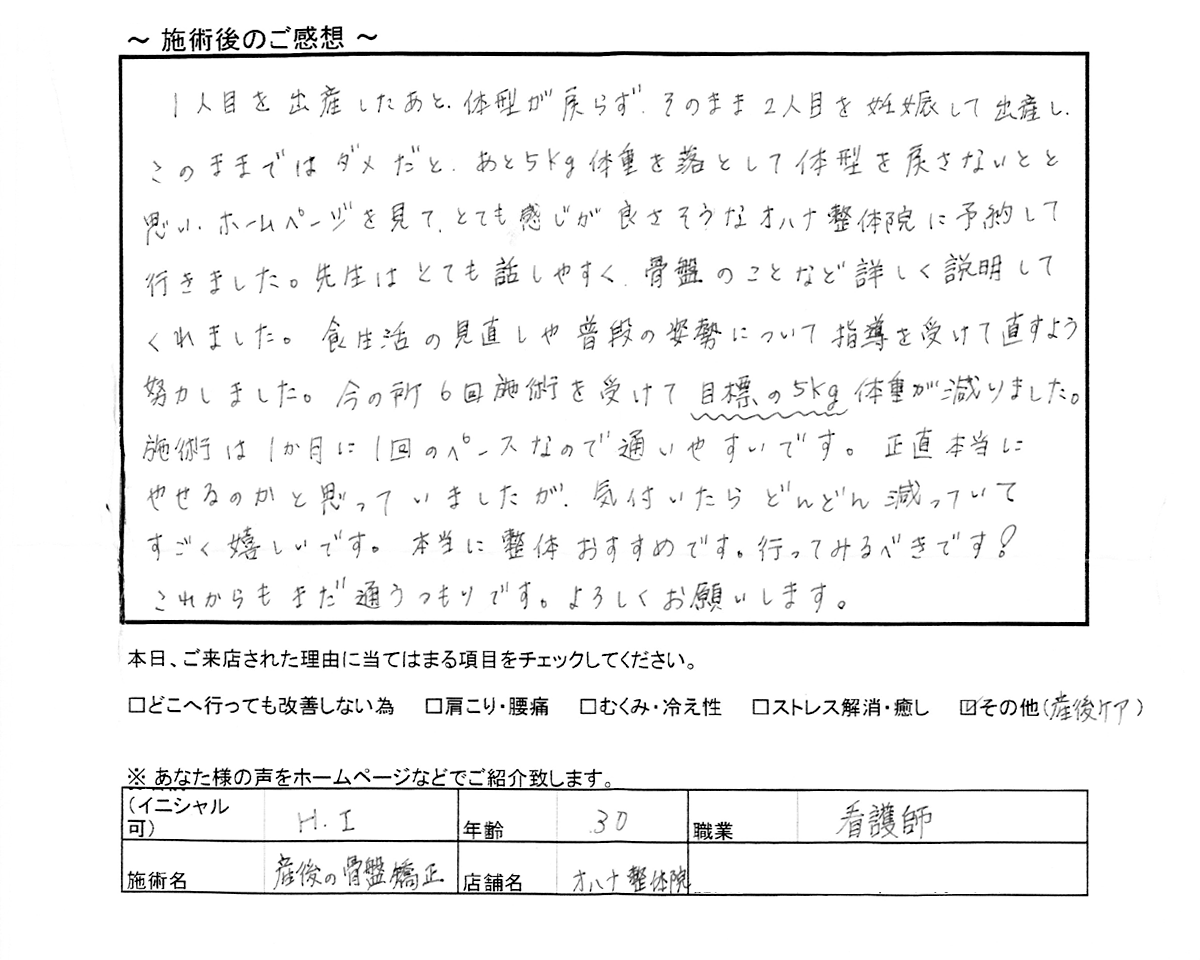 ～ 施術後のご感想 ～
1人目を出産したあと、体型が戻らず、そのまま2人目を妊娠して出産し、
このままではダメだと、あと5kg体重を落として体型を戻さないとと
思い、ホームページを見て、とても感じが良さそうなオハナ整体院に予約して
行きました。先生はとても話しやすく、骨盤のことなど詳しく説明して
くれました。食生活の見直しや普段の姿勢について指導を受けて直すよう
努力しました。今の所6回施術を受けて目標の5kg体重が減りました。
施術は1か月に1回のペースなので通いやすいです。正直本当に
やせるのかと思っていましたが、気付いたらどんどん減っていて
すごく嬉しいです。本当に整体おすすめです。行ってみるべきです！
これからもまだ通うつもりです。よろしくお願いします。
本日、ご来店された理由に当てはまる項目をチェックしてください。
□どこへ行っても改善しない為 □肩こり・腰痛 □むくみ・冷え性 □ストレス解消・癒し ☑その他（産後ケア）
※ あなた様の声をホームページなどでご紹介致します。
（イニシャル可） H.I 年齢 30 職業 看護師
施術名 産後の骨盤矯正 店舗名 オハナ整体院